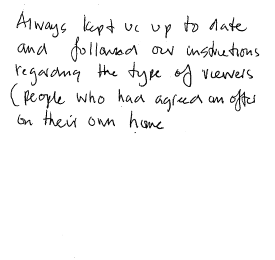 Always kept us up to date
and followed our instructions
regarding the type of viewers
(people who had agreed an offer
on their own home